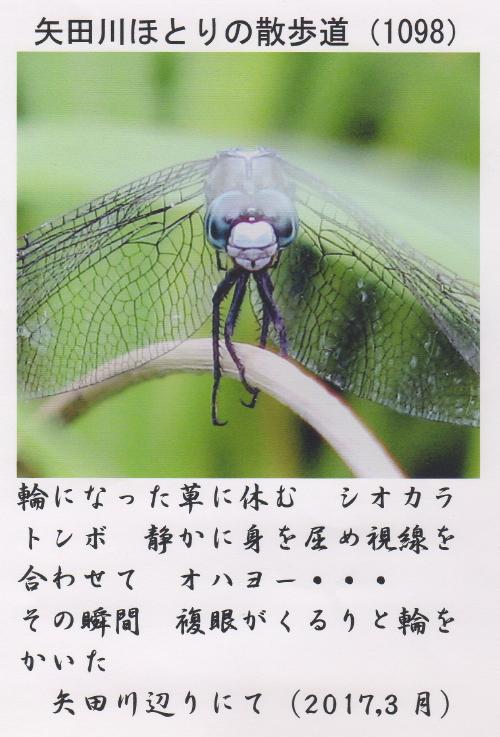 矢田川ほとりの散歩道（1098）
輪になった草に休む　シオカラ
トンボ　静かに身を屈め視線を
合わせて　オハヨー・・・
その瞬間　複眼がくるりと輪を
かいた
矢田川辺りにて（2017,3 月）